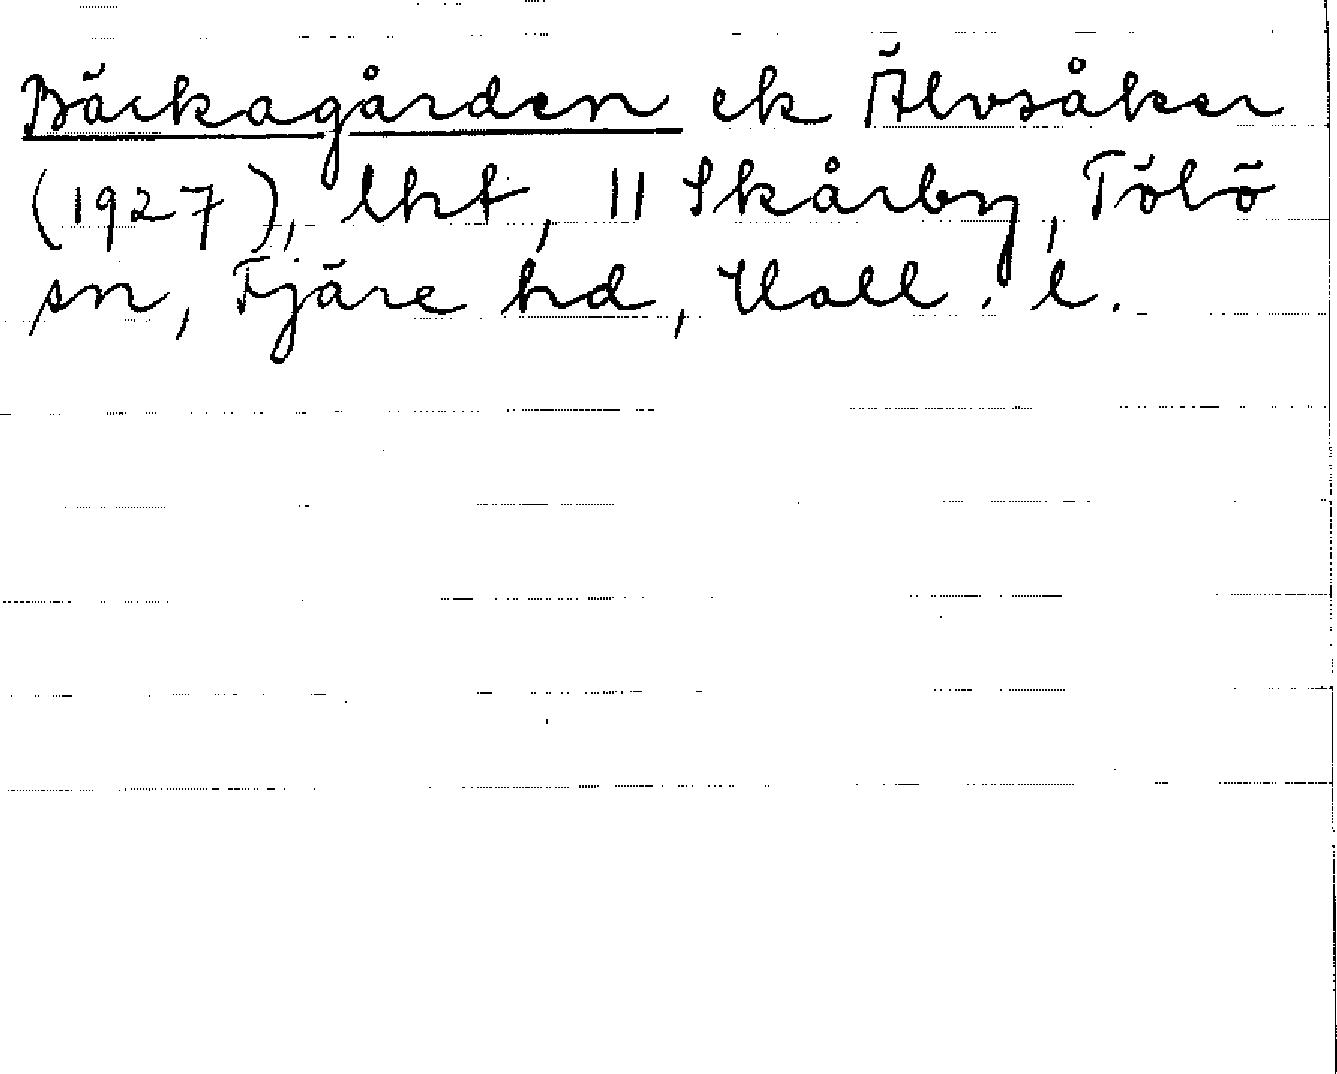 Bäckagården ek Älvsåker
(1927), lht, 11 Skårby, Tölö
sn, Fjäre hd, Hall. l.